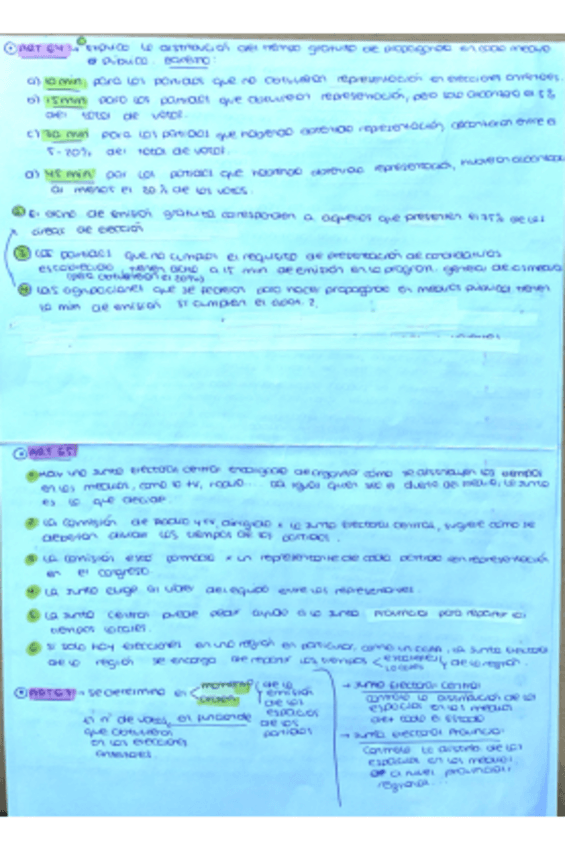 ART 64 → explica la distribución del tiempo gratuito de propaganda en cada medio
público. Baremo:
a) 10 min para los partidos que no obtuvieron representación en elecciones anteriores.
b) 15 min para los partidos que obtuvieron representación, pero solo alcanzaron el 5%
del total de votos.
c) 30 min para los partidos que habiendo obtenido representación, alcanzaron entre el
5-20% del total de votos.
d) 45 min por los partidos que habiendo obtenido representación, hubieran alcanzado
al menos el 20% de los votos.
2 El dcho de emisión gratuita corresponden a aquellos que presenten el 75% de las
áreas de elección
3 Los partidos que no cumplan el requisito de presentación de candidaturas
establecido tienen dcho a 15 min de emisión en la program. general de los medios
(para obtuvieron el 20%)
4 Las agrupaciones que se federen para hacer propaganda en medios públicos tienen
10 min de emisión si cumplen el 2.
ART 65
1 Hay una Junta Electoral Central encargada de organizar cómo se distribuyen los tiempos
en los medios, como la tv, radio... da igual quien sea el dueño del medio, la Junta
es la que decide.
2 La Comisión de Radio y TV, dirigida x la Junta Electoral Central, sugiere cómo se
deberían dividir los tiempos de los partidos.
3 La Comisión está formada x un representante de cada partido con representación
en el congreso.
4 La Junta elige al líder del equipo entre los representantes.
5 La Junta Central puede pedir ayuda a la Junta Provincial para repartir los
tiempos locales.
6 Si solo hay elecciones en una región en particular, como un CCAA, la Junta Electoral
de la región se encarga de repartir los tiempos locales de la región.
ART 67 → se determina el momento orden de la emisión de los espacios de los partidos
el nº de votos, en función de
que obtuvieron
en las elecciones
anteriores.
→ Junta Electoral Central
controla la distribución de los
espacios en los medios
de todo el estado
→ Junta Electoral Provincial
Controla la distrib. de los
espacios en los medios
a nivel provincial
regional...